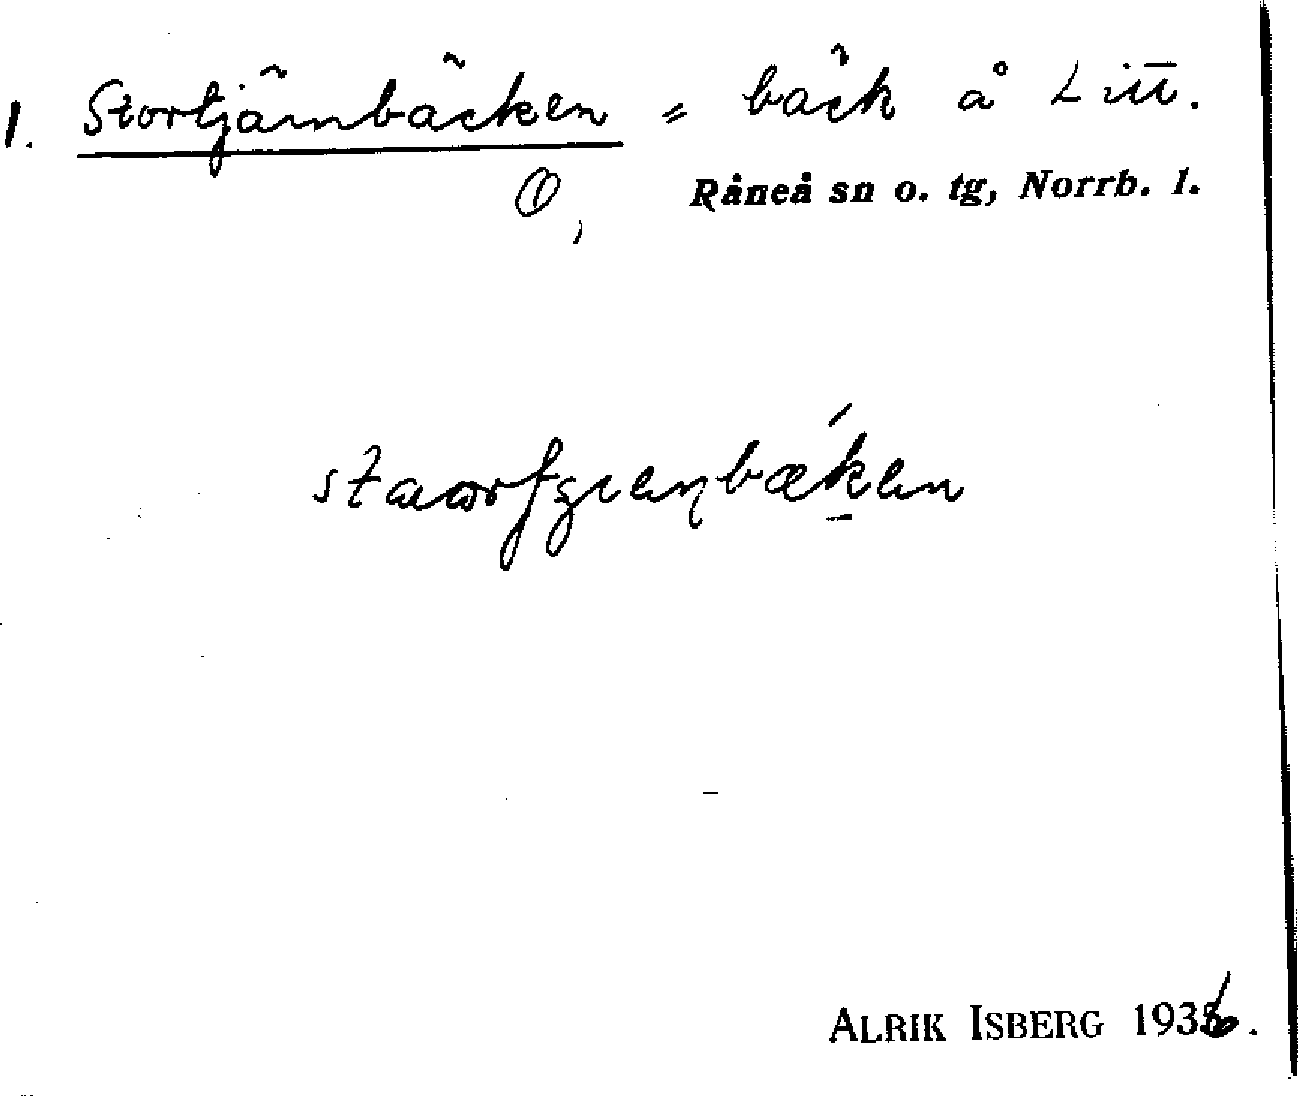 1. Stortjärnbäcken = bäck å Litt.
Råneå sn o. tg, Norrb. l.
ALRIK ISBERG 1936.